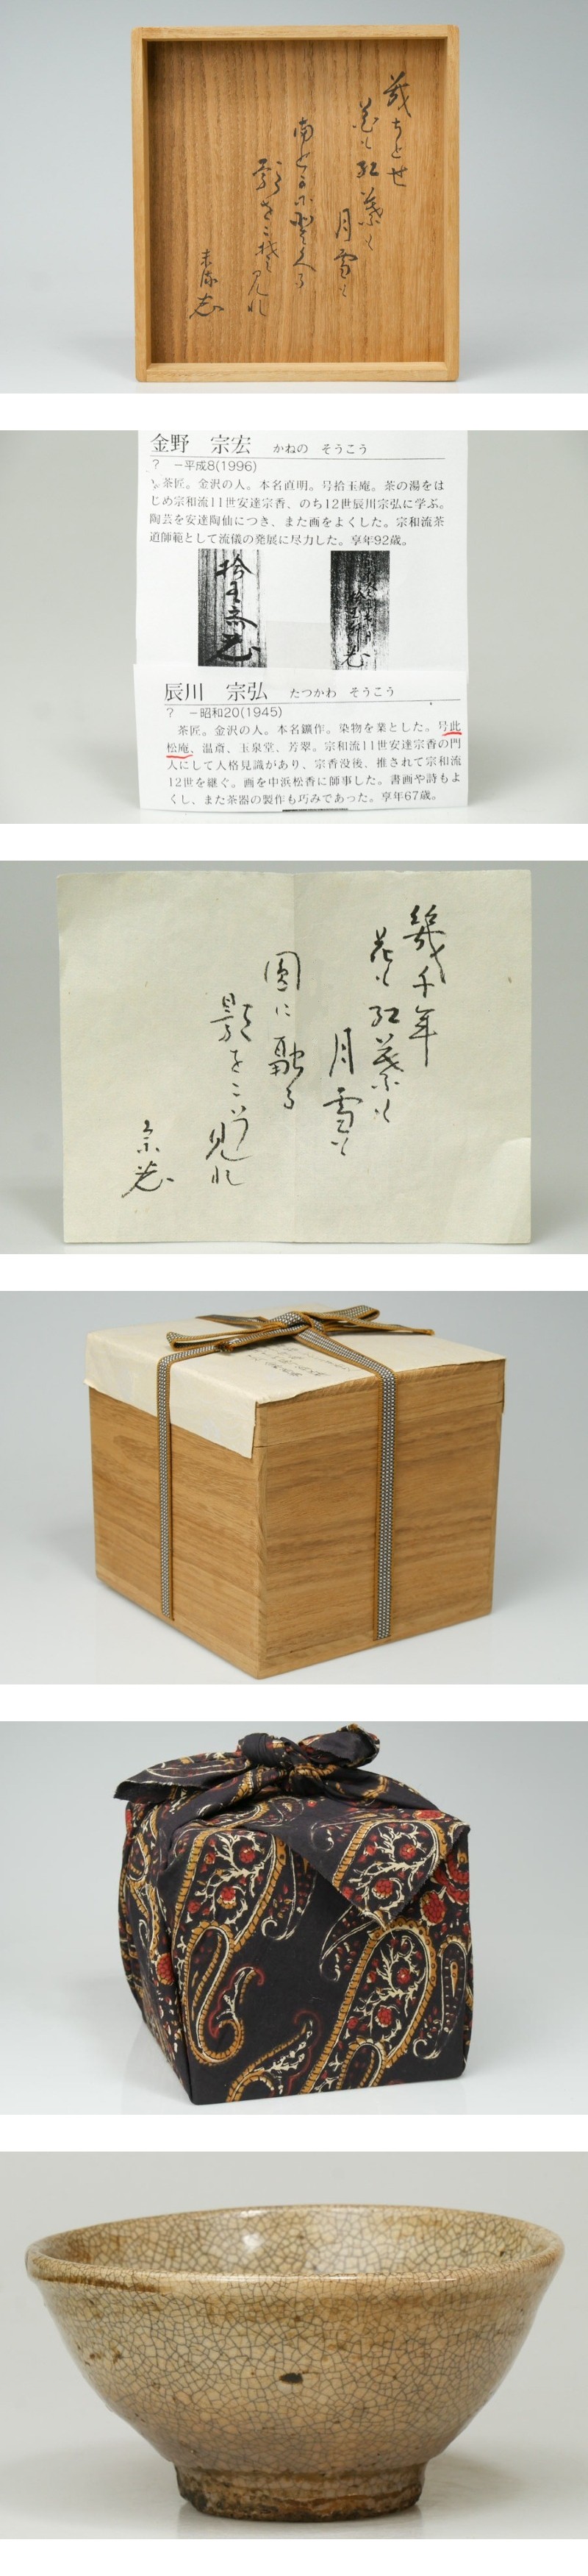 幾ちとせ
花も紅葉も
月雪も
影をこそ見れ
金野　宗宏　かねの　そうこう
？　－平成8(1996)
茶匠。金沢の人。本名直明。号拾玉庵。茶の湯をは
じめ宗和流11世安達宗香、のち12世辰川宗弘に学ぶ。
陶芸を安達陶仙につき、また画をよくした。宗和流茶
道師範として流儀の発展に尽力した。享年92歳。
辰川　宗弘　たつかわ　そうこう
？　－昭和20(1945)
茶匠。金沢の人。本名鑛作。染物を業とした。号此
松庵、温斎、玉泉堂、芳翠。宗和流11世安達宗香の門
人にして人格見識があり、宗香没後、推されて宗和流
12世を継ぐ。画を中浜松香に師事した。書画や詩もよ
くし、また茶器の製作も巧みであった。享年67歳。
幾千年
花も紅葉も
月雪も
圓に融る
影をこそ見れ